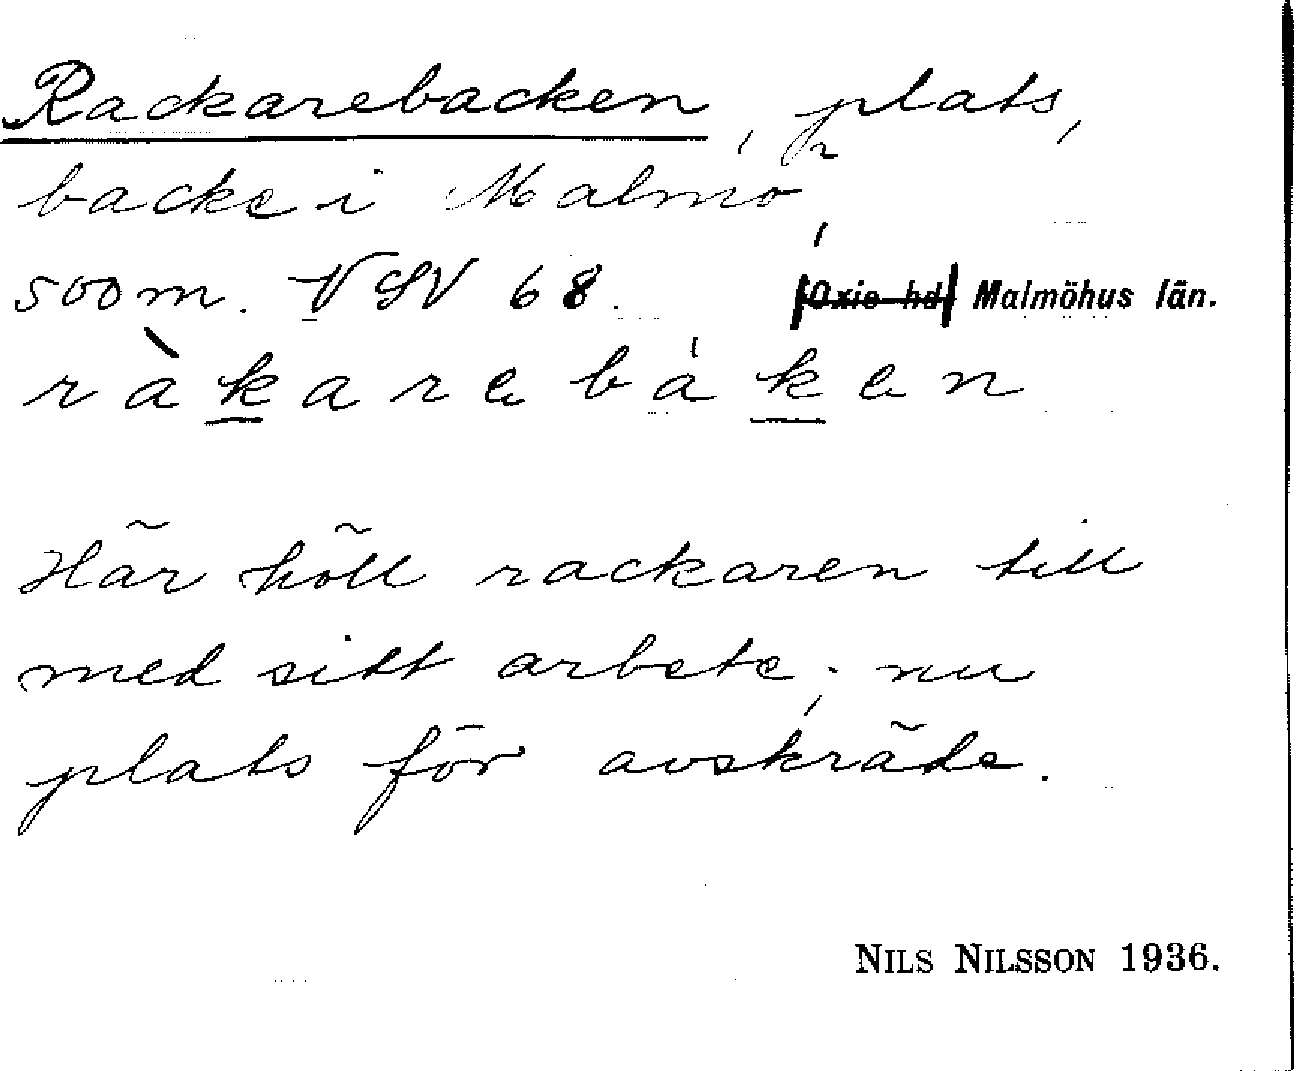 Rackarebacken, plats,
backe i Malmö,
500 m. VSV 68. Oxie hd Malmöhus län.
ràkarebáken
Här höll rackaren till
med sitt arbete; nu
plats för avskräde.
NILS NILSSON 1936.